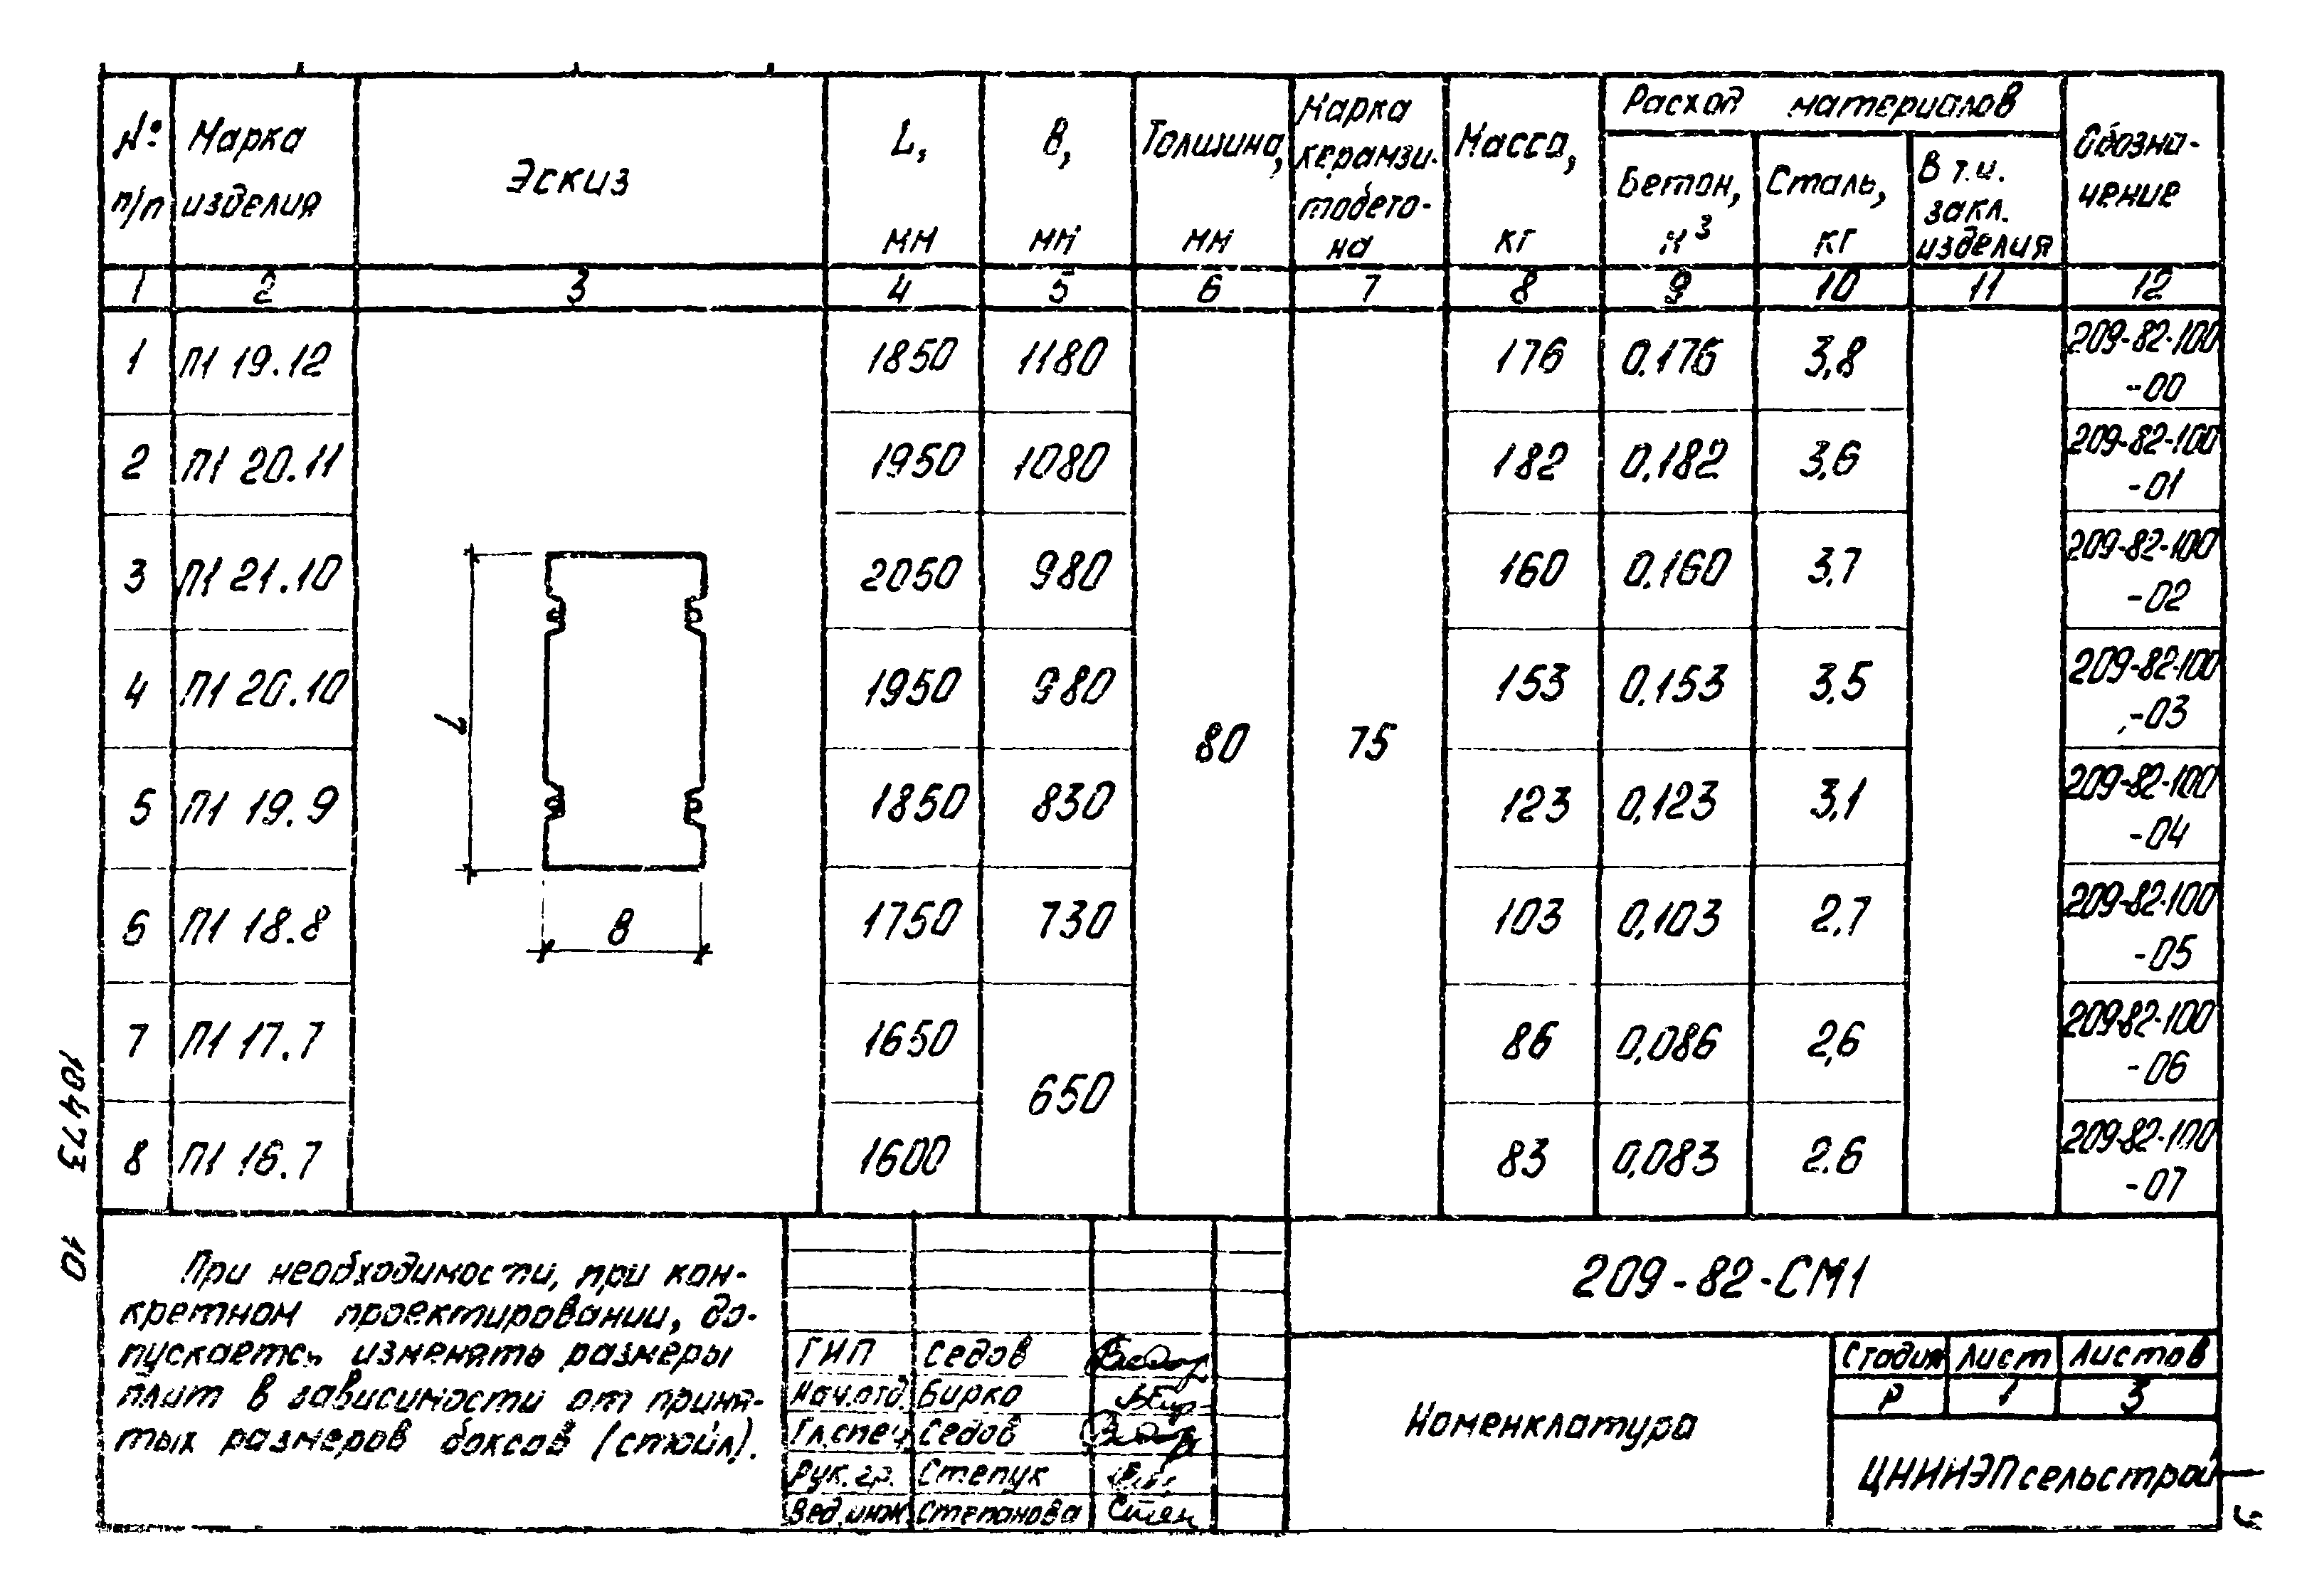 № п/п | Марка изделия | Эскиз | L, мм | В, мм | Толщина, мм | Марка керамзи-тобето-на | Масса, кг | Расход материалов | Обозна-чение
Бетон, м³ | Сталь, кг | В т.ч. закл. изделия
1 | 2 | 3 | 4 | 5 | 6 | 7 | 8 | 9 | 10 | 11 | 12
1 | П1 19.12 | 1850 | 1180 | 176 | 0.176 | 3,8 | 209-82-100-00
2 | П1 20.11 | 1950 | 1080 | 182 | 0,182 | 3,6 | 209-82-100-01
3 | П1 21.10 | 2050 | 980 | 160 | 0.160 | 3.7 | 209-82-100-02
4 | П1 20.10 | 1950 | 980 | 153 | 0.153 | 3,5 | 209-82-100-03
L
80 | 75
5 | П1 19.9 | 1850 | 830 | 123 | 0,123 | 3,1 | 209-82-100-04
6 | П1 18.8 | 1750 | 730 | 103 | 0,103 | 2.7 | 209-82-100-05
В
7 | П1 17.7 | 1650 | 86 | 0,086 | 2,6 | 209-82-100-06
650
8 | П1 16.7 | 1600 | 83 | 0,083 | 2.6 | 209-82-100-07
10473 10
При необходимости, при кон-
кретном проектировании, до-
пускается изменять размеры
плит в зависимости от приня-
тых размеров боксов (стойл).
ГИП Седов
Нач.отд. Бирко
Гл.спец. Седов
Рук. гр. Степук
Вед.инж. Степанова
209-82-СМ1
Номенклатура
Стадия Лист Листов
Р 1 3
ЦНИИЭПсельстрой